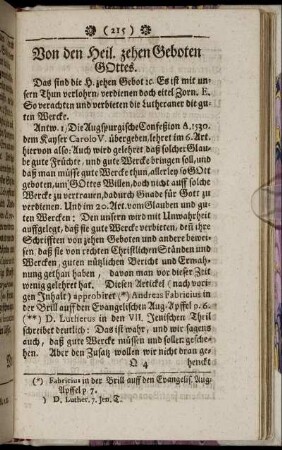 ( 215 )
Von den Heil. zehen Geboten
GOttes.
Das sind die H. zehen Gebot ꝛc. Es ist mit un-
sern Thun verlohrn, verdienen doch eitel Zorn. E.
So verachten und verbieten die Lutheraner die gu-
ten Wercke.
Antw. 1) Die Augspurgische Confeßion A. 1530.
dem Kayser Carolo V. übergeben, lehret im 6. Art.
hiervon also: Auch wird gelehret daß solcher Glau-
be gute Früchte, und gute Werck bringen soll, und
daß man müsse gute Werck thun, allerley so GOtt
geboten, um GOttes Willen, doch nicht auff solche
Wercke zu vertrauen, dadurch Gnade für Gott zu
verdienen. Und im 20. Art. vom Glauben und gu-
ten Wercken: Den unsern wird mit Unwahrheit
auffgelegt, daß sie gute Werck verbieten, den ihre
Schrifften von zehen Geboten und andere bewei-
sen, daß sie von rechten Christlichen Ständen und
Wercken, guten nützlichen Bericht und Ermah-
nung gethan haben, davon man vor dieser Zeit
wenig gelehret hat. Diesen Artickel (nach vori-
gen Inhalt) approbiret (*) Andreas Fabricius in
der Brill auff den Evangelischen Aug-Apffel. p. 6.
**) D. Lutherus in den VII. Jenischen Theil
schreibet deutlich: Das ist wahr, und wir sagens
auch, daß gute Werck müssen und sollen gesche-
hen. Aber den Zusatz wollen wir nicht dran ge-
O 4 henckt
(*) Fabricius in der Brill auff den Evangelis. Aug-
Apffel p. 7.
) D. Luther. 7. Jen. T.